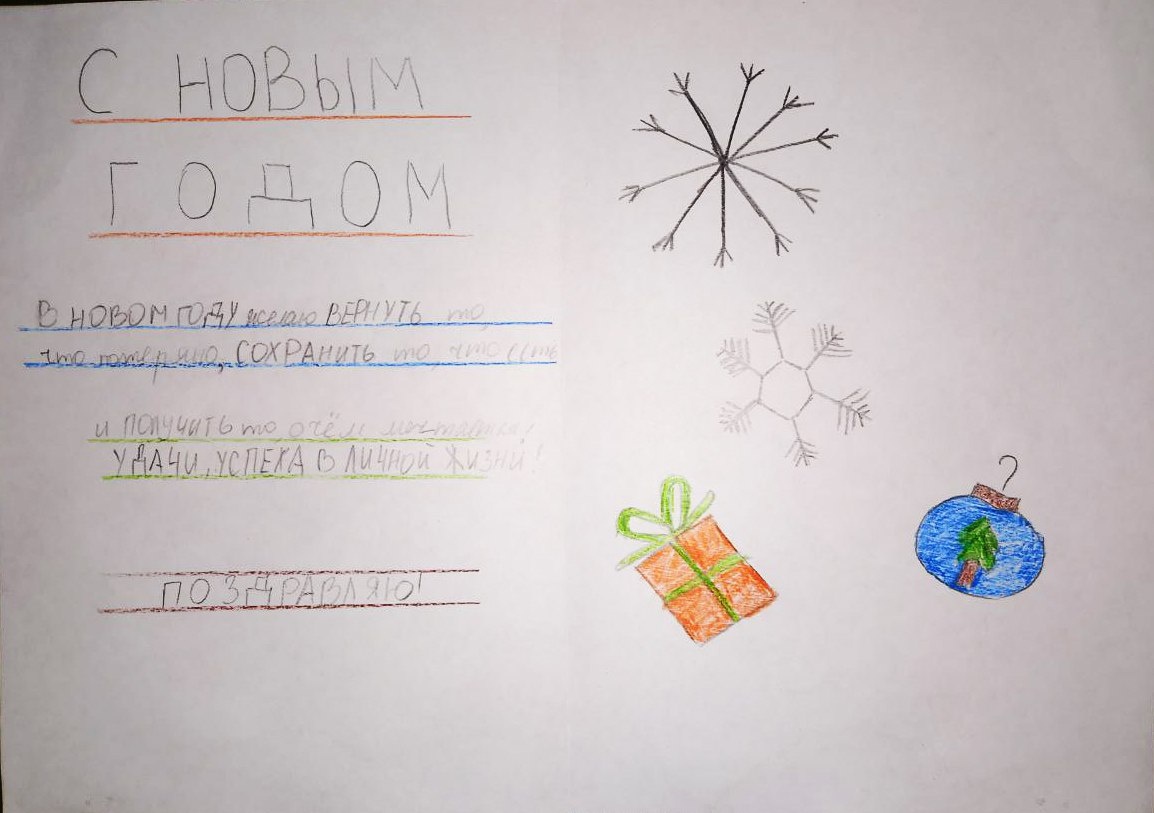 С НОВЫМ
ГОДОМ
В НОВОМ ГОДУ желаю ВЕРНУТЬ то,
что потеряно, СОХРАНИТЬ то, что есть
и ПОЛУЧИТЬ то о чём мечтаете!
УДАЧИ, УСПЕХА В ЛИЧНОЙ ЖИЗНИ!
ПОЗДРАВЛЯЮ!